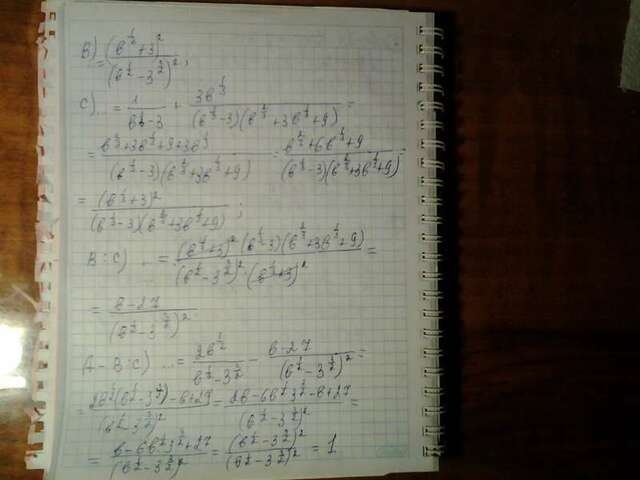 B) = (b^(1/3)+3)^2 / (b^(1/2)-3^(3/2))^2 ;
C) ... = 1 / (b^(1/3)-3) + 3b^(1/3) / ((b^(1/3)-3)(b^(2/3)+3b^(1/3)+9)) =
= (b^(2/3)+3b^(1/3)+9+3b^(1/3)) / ((b^(1/3)-3)(b^(2/3)+3b^(1/3)+9)) = (b^(2/3)+6b^(1/3)+9) / ((b^(1/3)-3)(b^(2/3)+3b^(1/3)+9)) =
= (b^(1/3)+3)^2 / ((b^(1/3)-3)(b^(2/3)+3b^(1/3)+9)) ;
B:C) ... = (b^(1/3)+3)^2 (b^(1/3)-3)(b^(2/3)+3b^(1/3)+9) / ((b^(1/2)-3^(3/2))^2 · (b^(1/3)+3)^2) =
= (b-27) / (b^(1/2)-3^(3/2))^2
A-B:C) ... = 2b^(1/2) / (b^(1/2)-3^(3/2)) - (b-27) / (b^(1/2)-3^(3/2))^2 =
= (2b^(1/2)(b^(1/2)-3^(3/2))-b+27) / (b^(1/2)-3^(3/2))^2 = (2b-6b^(1/2)3^(1/2)-b+27) / (b^(1/2)-3^(3/2))^2 =
= (b-6b^(1/2)3^(1/2)+27) / (b^(1/2)-3^(3/2))^2 = (b^(1/2)-3^(3/2))^2 / (b^(1/2)-3^(3/2))^2 = 1